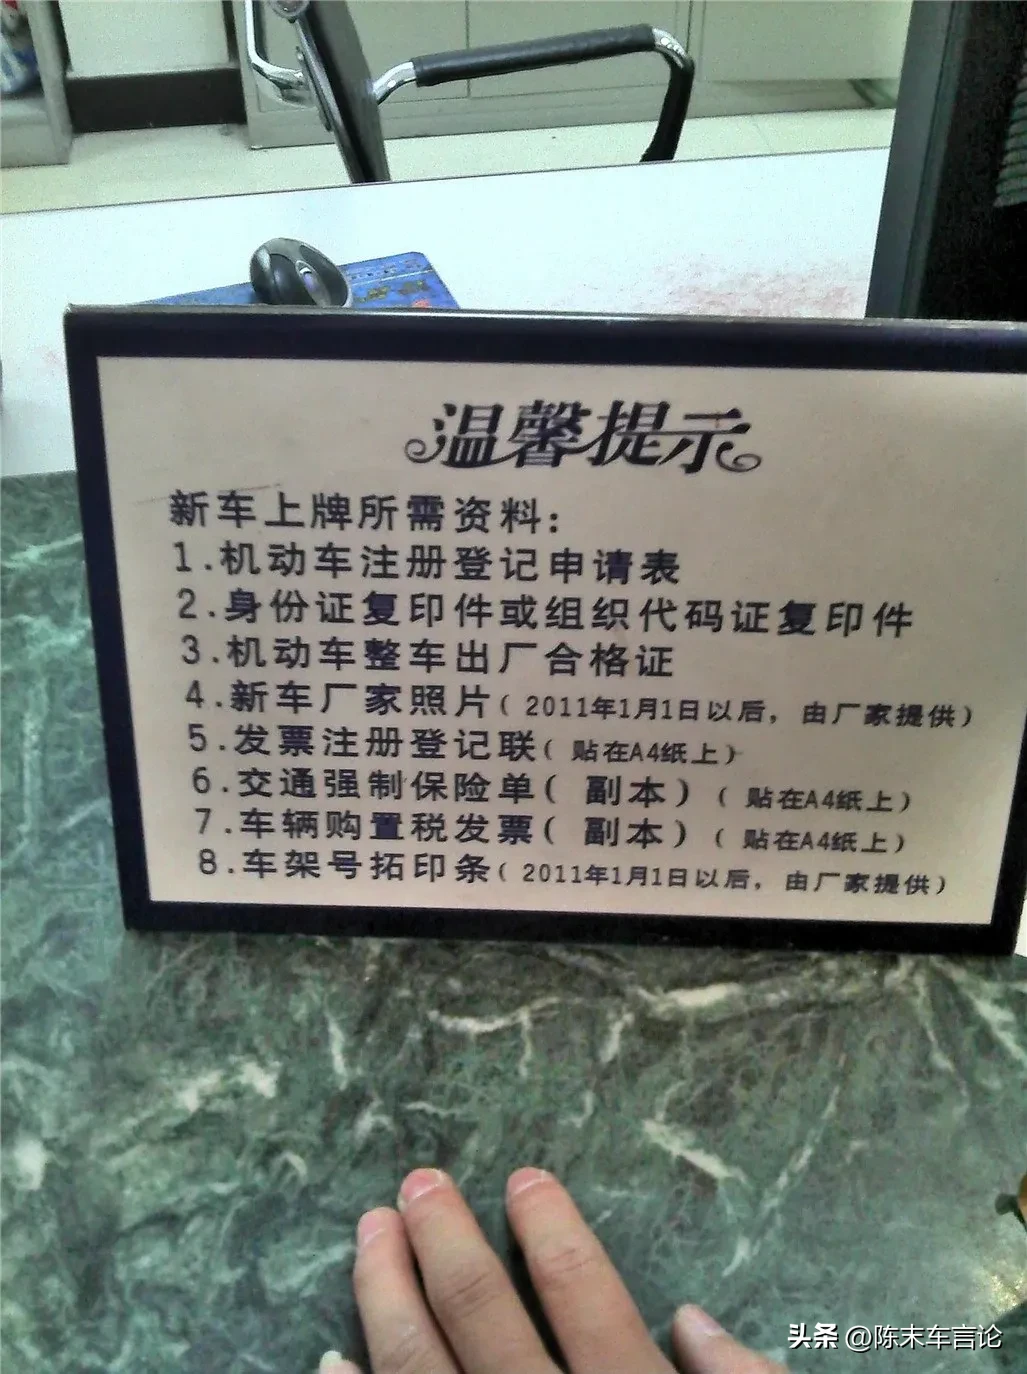 温馨提示
新车上牌所需资料:
1.机动车注册登记申请表
2.身份证复印件或组织代码证复印件
3.机动车整车出厂合格证
4.新车厂家照片(2011年1月1日以后，由厂家提供)
5.发票注册登记联(贴在A4纸上)
6.交通强制保险单(副本)(贴在A4纸上)
7.车辆购置税发票(副本)(贴在A4纸上)
8.车架号拓印条(2011年1月1日以后，由厂家提供)
头条 @陈末车言论